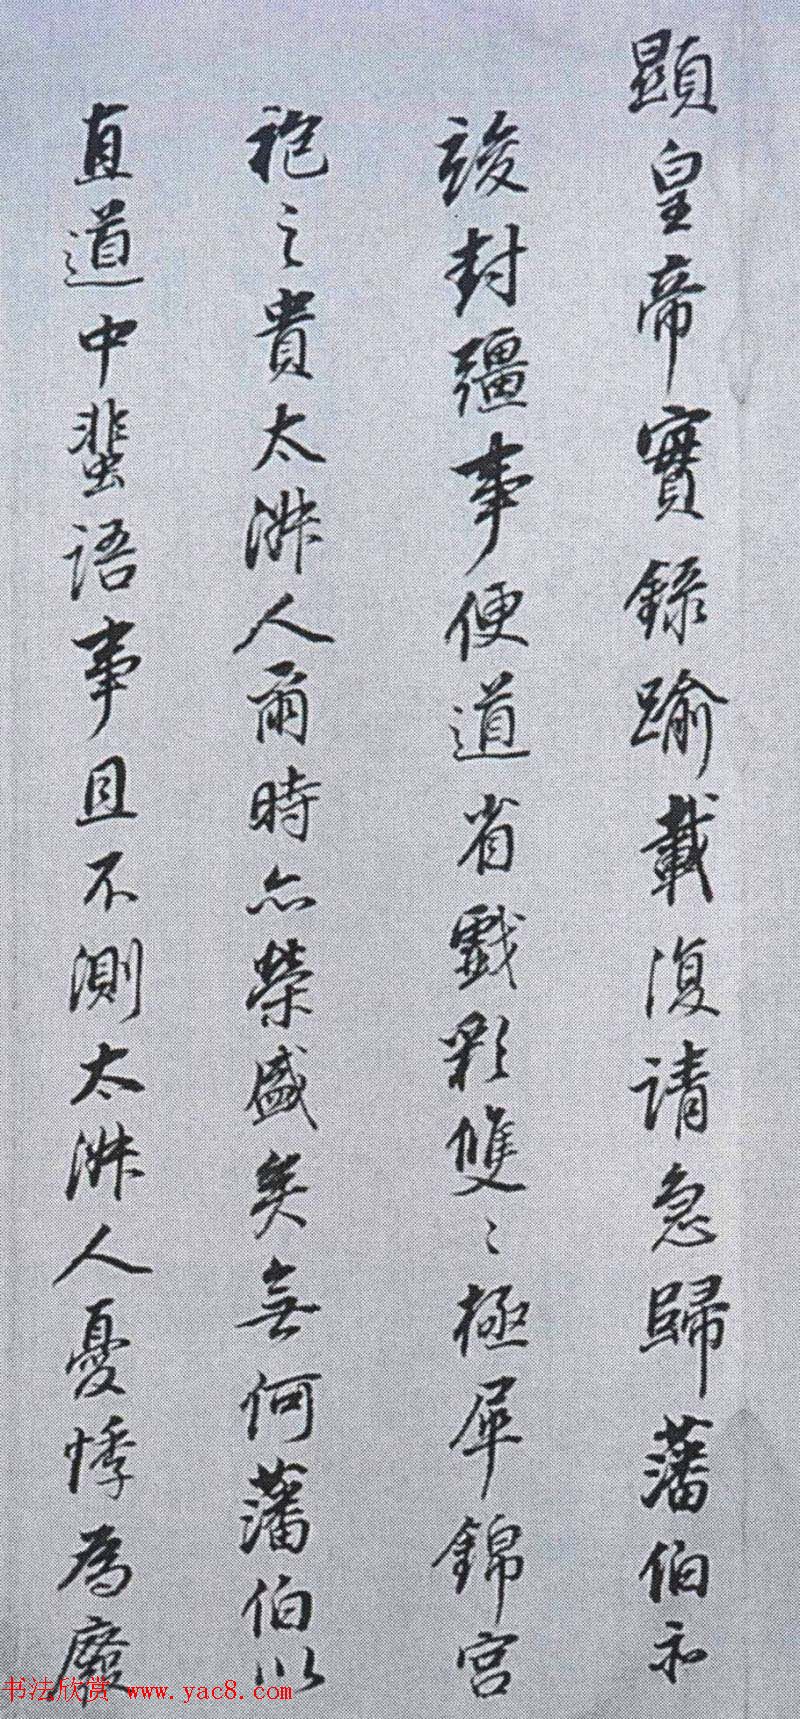 顯皇帝實錄踰載復請急歸藩伯亦
竣封疆事便道省戲彩雙〻極犀錦宮
袍之貴太淑人爾時亦榮盛矣無何藩伯以
直道中蜚語事且不測太淑人憂悸為廢
书法欣赏 www.yac8.com